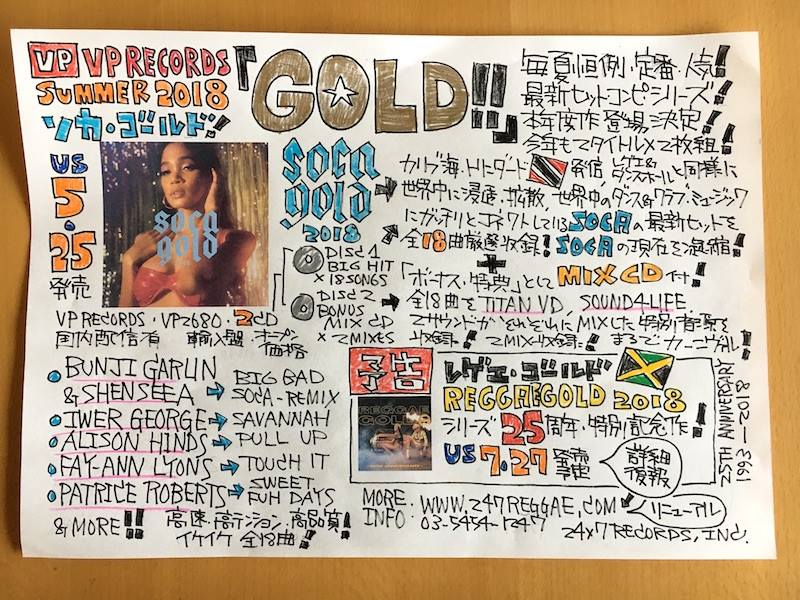 VP VP RECORDS
SUMMER 2018
ソカ・ゴールド!
『GOLD!!』
毎夏恒例・定番・人気!
最新ヒットコンピシリーズ!
本年度作登場決定!
今年も2タイトル×2枚組!
US
5.25
発売
soca
gold
soca
gold
2018
DISC 1
BIG HIT
×18SONGS
DISC 2
BONUS
MIX CD
×2MIXES
カリブ海、トリニダード発信、レゲエ&
ダンスホールと同様に
世界中に浸透・拡散、世界中のダンス&クラブ・ミュージック
にガッチリとコネクトしているSOCAの最新ヒットを
全18曲厳選収録!SOCAの現在を凝縮!
+
「ボーナス・特典」として MIX CD 付!
全18曲をTITAN VD、SOUND4LIFE
2サウンドがそれぞれにMIXした特別音源を
収録!2MIX収録!まるでカーニヴァル!
VP RECORDS・VP2680・2CD
国内配信有 輸入盤・オープン
価格
BUNJI GARLIN
& SHENSEEA → BIG BAD
SOCA-REMIX
IWER GEORGE → SAVANNAH
ALISON HINDS → PULL UP
FAY-ANN LYONS → TOUCH IT
PATRICE ROBERTS → SWEET
FUH DAYS
& MORE!! 高速・高テンション・高品質!
イケイケ 全18曲!
予告
レゲエ・ゴールド
REGGAE GOLD 2018
シリーズ25周年・特別記念作!
US 7.27 発売
予定
詳細
後報
REGGAE
GOLD
25TH ANNIVERSARY
1993-2018
MORE
INFO: WWW.247REGGAE.COM
03-5454-1247
リニューアル
24×7 RECORDS, INC.